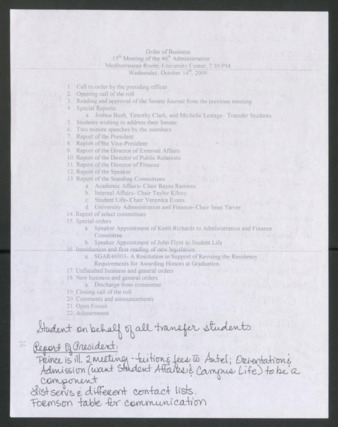 Order of Business
15th Meeting of the 46th Administration
Mediterranean Room, University Center, 7:30 PM
Wednesday, October 14th, 2009
1. Call to order by the presiding officer
2. Opening call of the roll
3. Reading and approval of the Senate Journal from the previous meeting
4. Special Reports
a. Joshua Bush, Timothy Clark, and Michelle - Transfer Students
5. Students wishing to address their Senate
6. Two minute speeches by the members
7. Report of the President
8. Report of the Vice-President
9. Report of the Director of External Affairs
10. Report of the Director of Public Relations
11. Report of the Director of Finance
12. Report of the Speaker
13. Report of the Standing Committees
a. Academic Affairs- Chair
b. Internal Affairs- Chair Taylor
c. Student Life- Chair Veronica Evans
d. University Administration and Finance- Chair
14. Report of select committees
15. Special orders
a. Speaker Appointment of Keith Richards to Administration and Finance
Committee
b. Speaker Appointment of John to Student Life
16. Introduction and first reading of new legislation
a. A Resolution in Support of Revising the Residency
Requirements for Awarding Honors at Graduation
17. Unfinished business and general orders
18. New business and general orders
a. Discharge from committee
19. Closing call of the roll
20. Comments and announcements
21. Open Forum
22. Adjournment
Student on behalf of all transfer students
Report of President:
Prince is ill. 2 meeting - tuition & fees to; Orientation &
Admission (want Student Affairs & Campus Life) to be a
component
listservs & different contact lists.
table for communication